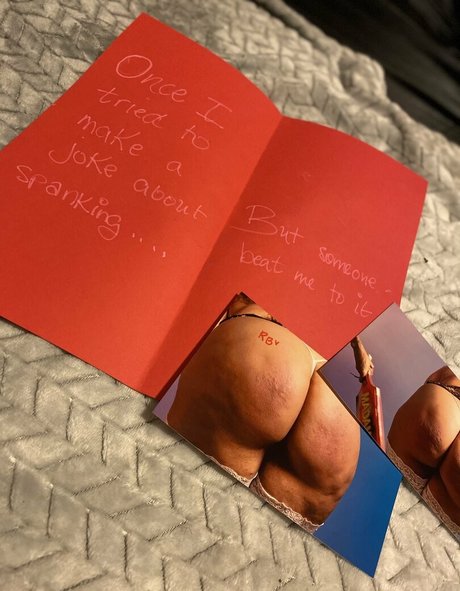 Once I
tried to
make a
joke about
spanking....
But someone
beat me to it